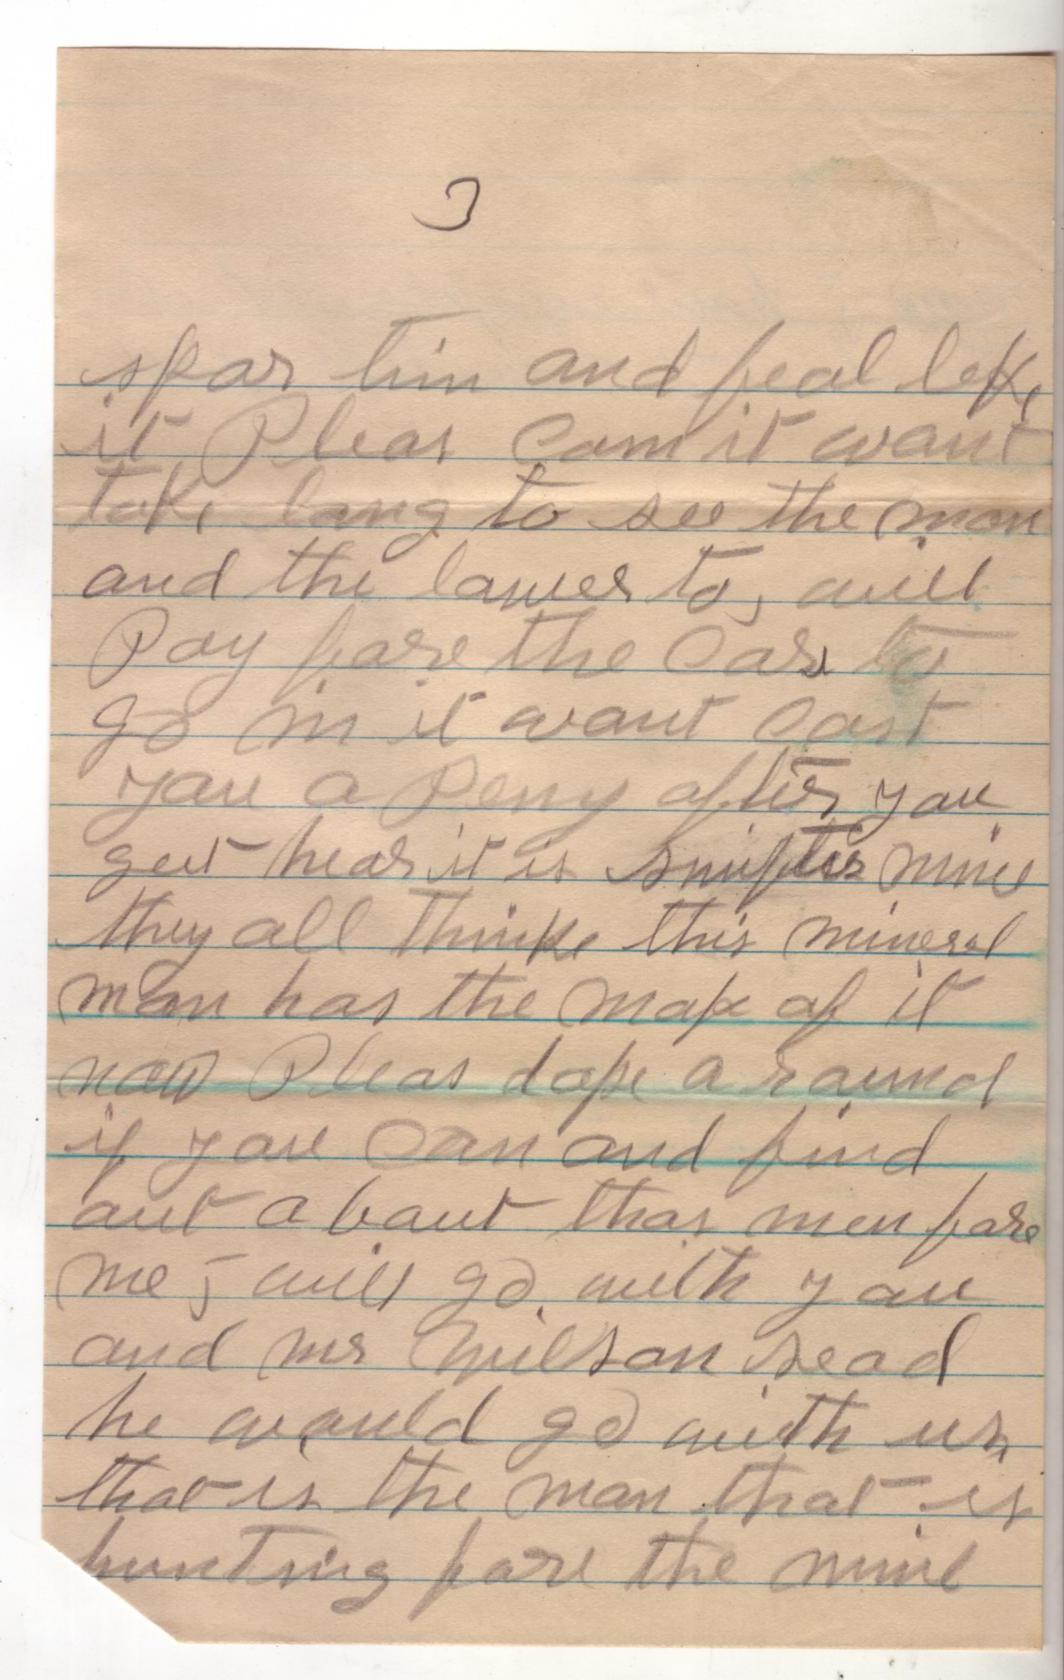 3
spar tim and feal lek
it Pleas Com it want
take lang to see the man
and the lawer to, will
Pay fare the Car to
go in it want Cast
yau a Penny after yau
get hear it is Swifter mine
they all think this mineral
man has the map af it
now Pleas dope a raund
if yau Can and find
aut a baut thas men fare
me, I will go with yau
and mr Wilson sead
he would go with us
that is the man that is
hunting fare the mine